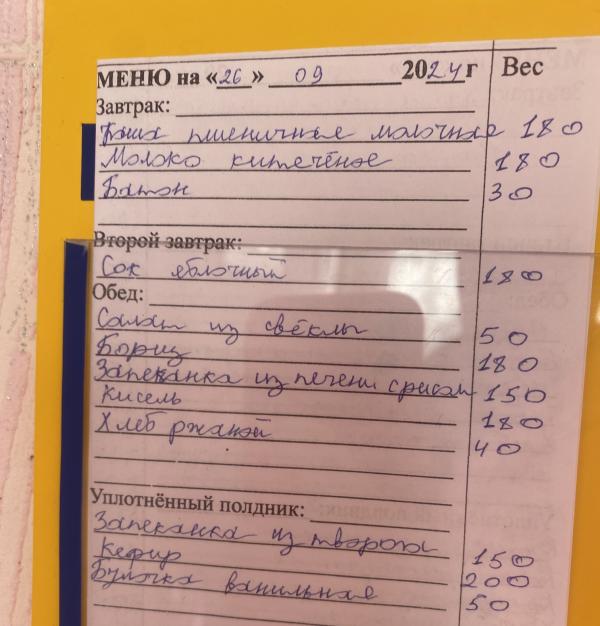 МЕНЮ на «26» 09 2024г Вес
Завтрак:
Каша пшеничная молочная 180
Молоко кипечёное 180
Батон 30
Второй завтрак:
Сок яблочный 180
Обед:
Салат из свёклы 50
Борщ 180
Запеканка из печени с рисом 150
Кисель 180
Хлеб ржаной 40
Уплотнённый полдник:
Запеканка из творога 150
Кефир 200
Булочка ванильная 50